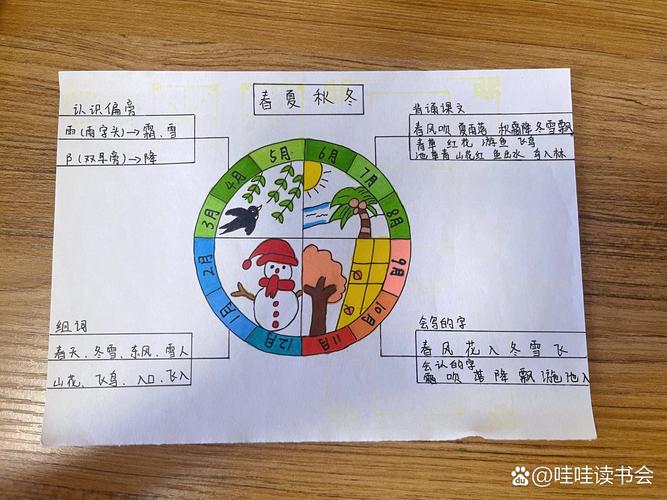 春夏秋冬
认识偏旁
⻗(雨字头)→霜、雪
阝(双耳旁)→降
背诵课文
春风吹 夏雨落 秋霜降 冬雪飘
青草 红花 游鱼 飞鸟
池草青 山花红 鱼出水 鸟入林
5月
6月
4月
7月
3月
8月
2月
9月
1月
10月
12月
11月
组词
春天、冬雪、东风、雪人
山花、飞鸟、入口、飞入
会写的字
春 风 花 入 冬 雪 飞
会认的字
霜 吹 落 降 飘 游 池 入
du 百度 @哇哇读书会